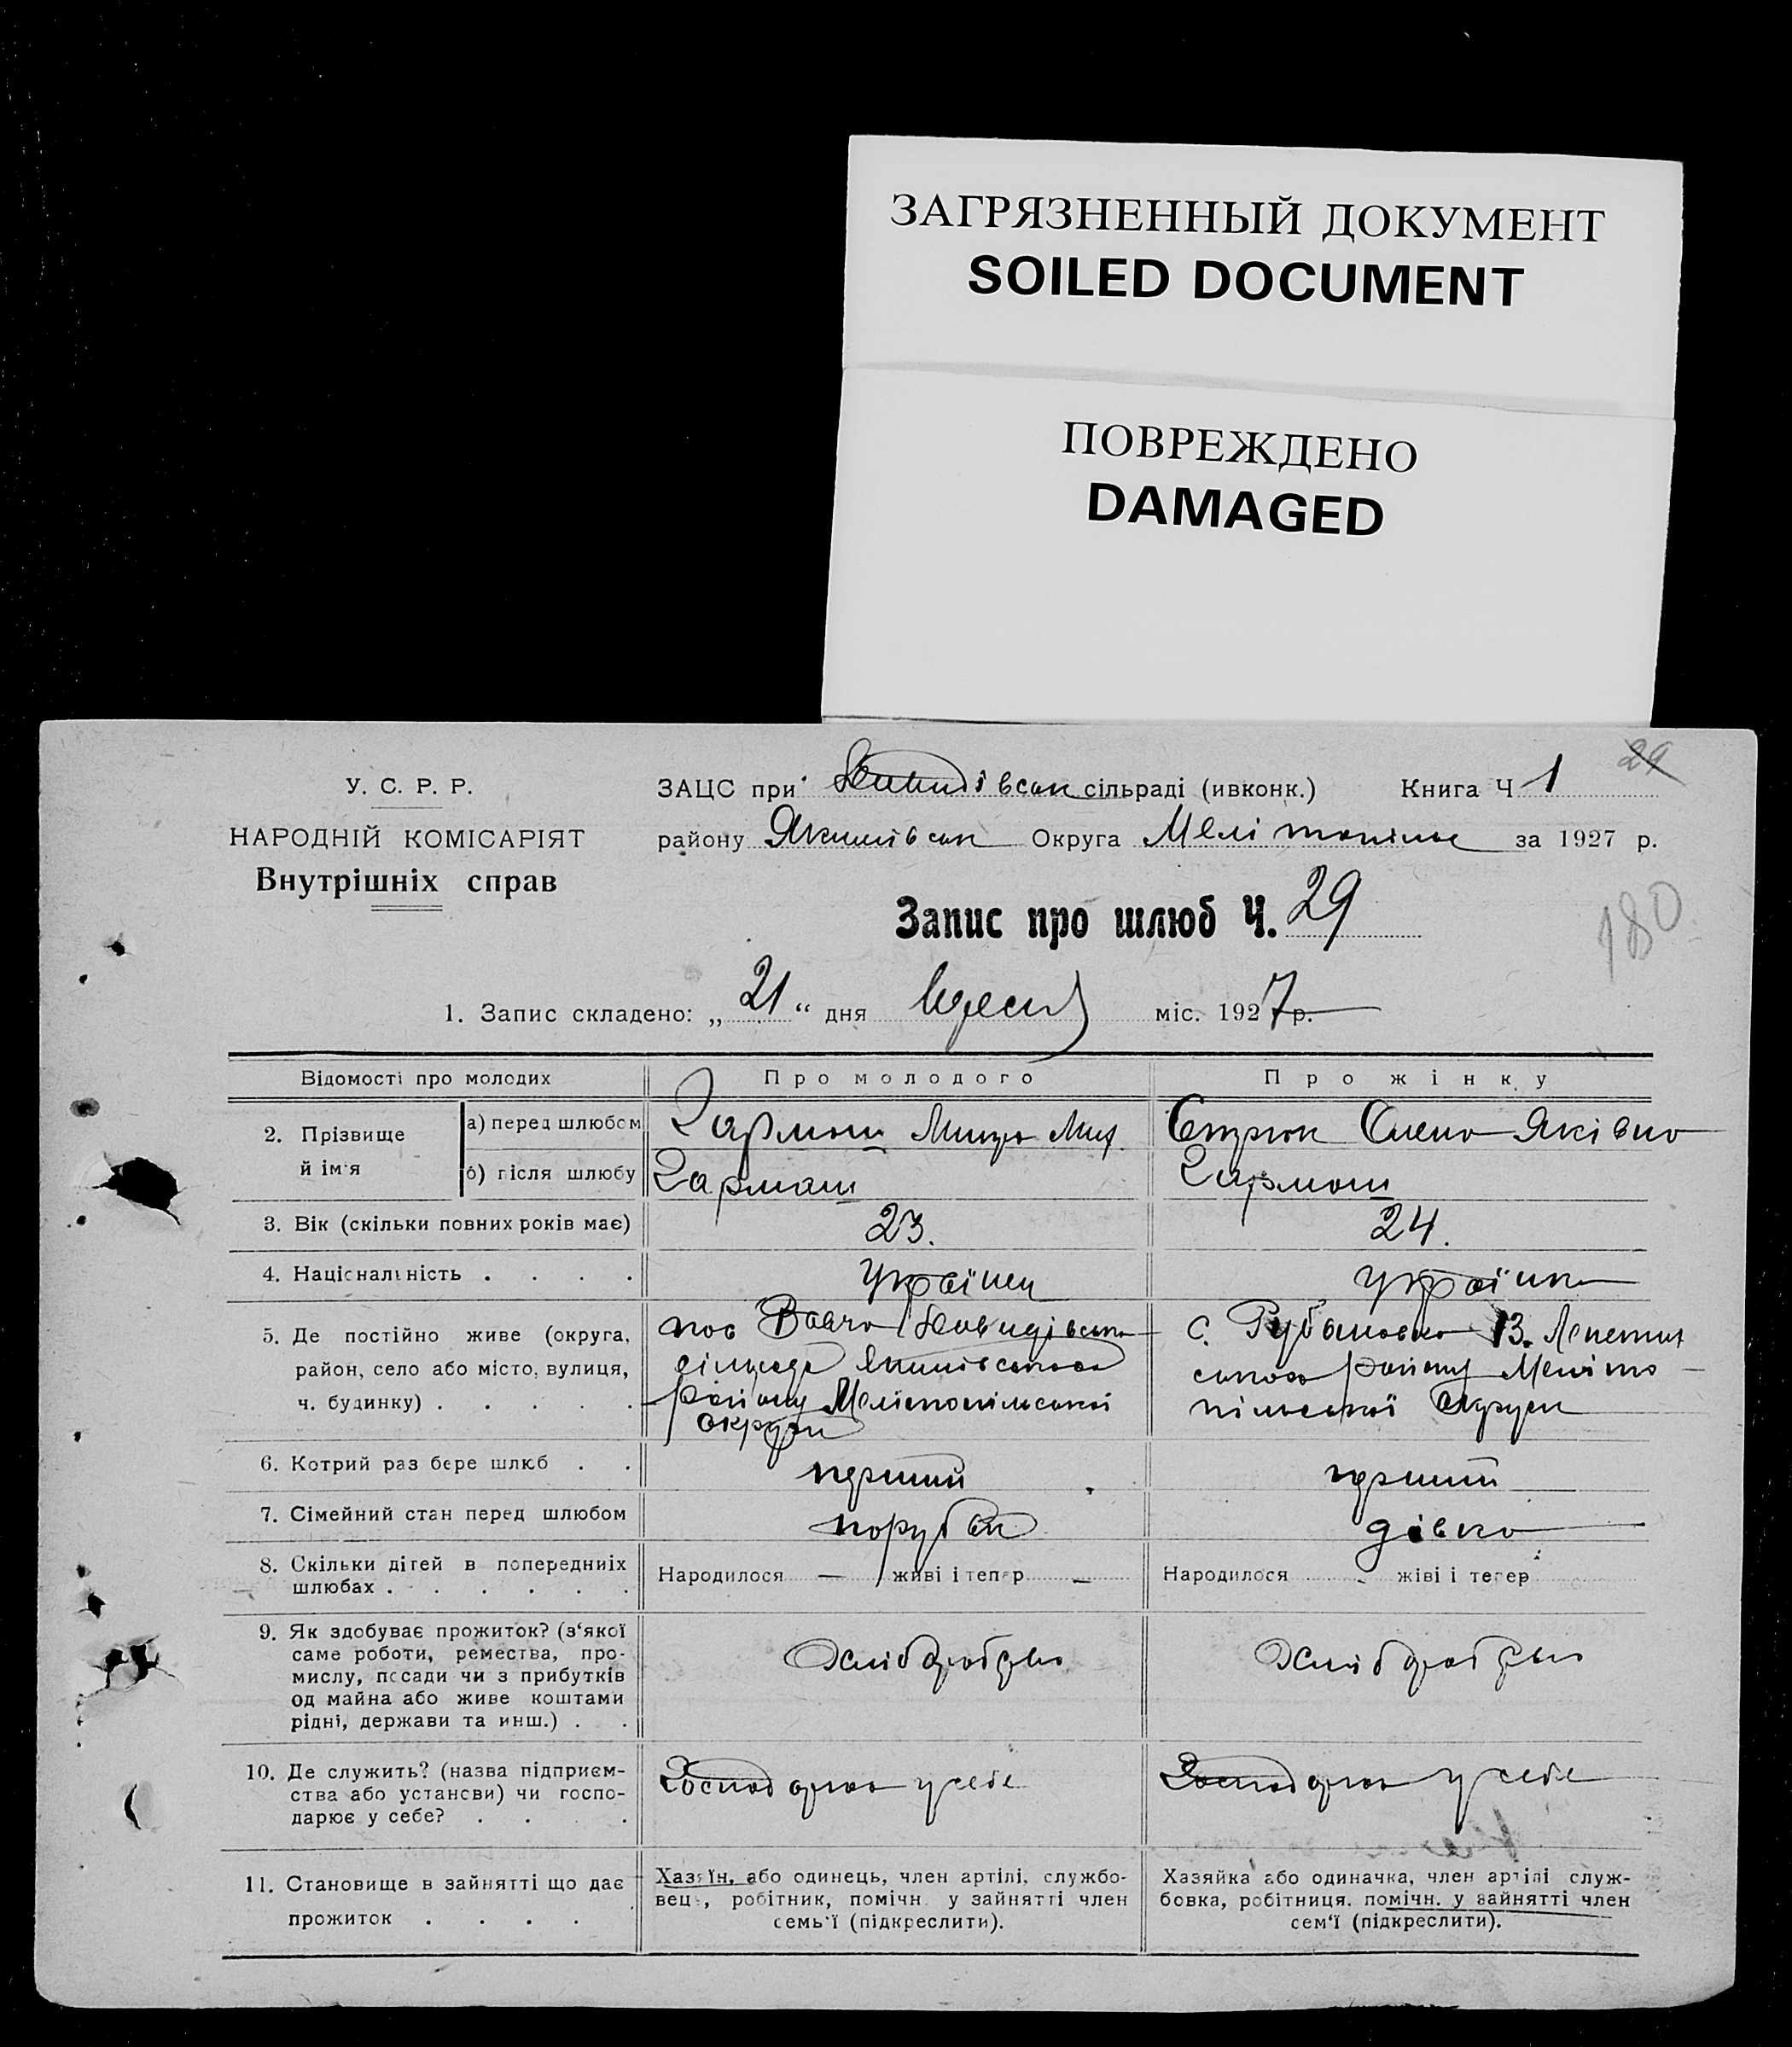 ЗАГРЯЗНЕННЫЙ ДОКУМЕНТ
SOILED DOCUMENT
ПОВРЕЖДЕНО
DAMAGED
29
У. С. Р. Р.
НАРОДНІЙ КОМІСАРІЯТ
Внутрішніх справ
ЗАЦС при сільраді (ивконк.) Книга Ч 1
району Якимівськ Округа Мелітопільс за 1927 р.
Запис про шлюб Ч. 29
180
1. Запис складено: „ 21 “ дня міс. 1927 р.
Відомості про молодих Про молодого Про жінку
2. Прізвище й ім'я
а) перед шлюбом Гармаш Митро Мих. Олена Яківна
б) після шлюбу Гармаш Гармаш
3. Вік (скільки повних років має) 23. 24.
4. Національність . . . . Українец українка
5. Де постійно живе (округа, район, село або місто, вулиця, ч. будинку) . . . . .
пос Вовчо
сільрада Якимівського
району Мелітопільської
округи
с. Рубановка В. Лепетих
ського району Меліто
пільської округи
6. Котрий раз бере шлюб . . перший перший
7. Сімейний стан перед шлюбом порубок дівка
8. Скільки дітей в попередниіх шлюбах . . . . . .
Народилося — живі і тепер —
Народилося - жіві і тепер
9. Як здобуває прожиток? (з‘якої
саме роботи, ремества, про-
мислу, посади чи з прибутків
од майна або живе коштами
рідні, держави та инш.) . .
Хліборобство
Хліборобство
10. Де служить? (назва підприєм-
ства або установи) чи госпо-
дарює у себе? . . . .
Господарює у себе
Господарює у себе
11. Становище в зайнятті що дає
прожиток . . . .
Хазяїн, або одинець, член артілі, службо-
вець, робітник, помічн. у зайнятті член
семь'ї (підкреслити).
Хазяйка або одиначка, член артілі служ-
бовка, робітниця, помічн. у зайнятті член
сем'ї (підкреслити).